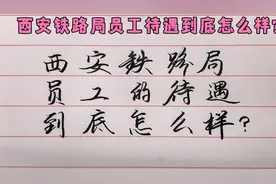 西安铁路局员工待遇到底怎么样?
西安铁路局
员工的待遇
到底怎么样?